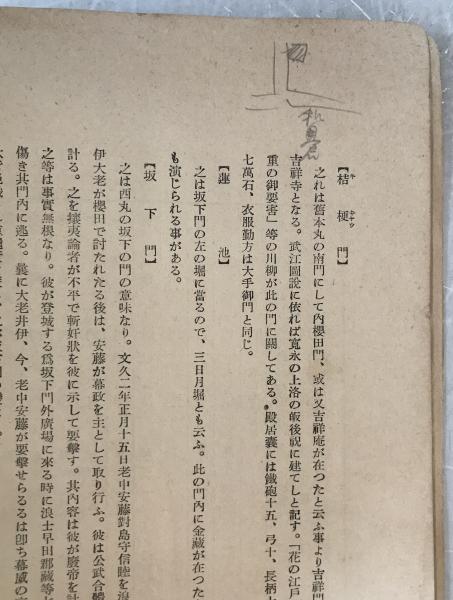 【桔梗門】
キキヤウ
之れは舊本丸の南門にして內櫻田門、或は又吉祥庵が在つたと云ふ事より吉祥門
吉祥寺となる。武江圖說に依れば寬永の上洛の皈後祝に建てしと記す。「花の江戶
重の御要害」等の川柳が此の門に關してある。殿居囊には鐵砲十五、弓十、長柄
七萬石、衣服勤方は大手御門と同じ。
【蓮池】
之は坂下門の左の堀に當るので、三日月堀とも云ふ。此の門內に金藏が在つた
も演じられる事がある。
【坂下門】
之は西丸の坂下の門の意味なり。文久二年正月十五日老中安藤對島守信睦を
伊大老が櫻田で討たれたる後は、安藤が幕政を主として取り行ふ。彼は公武合體
計る。之を攘夷論者が不平で斬奸狀を彼に示して要擊す。其內容は彼が廢帝を
之等は事實無根なり。彼が登城する爲坂下門外廣場に來る時に浪士早田郡藏等
傷き其門內に逃る。曩に大老井伊、今、老中安藤が要擊せらるるは卽ち幕威の